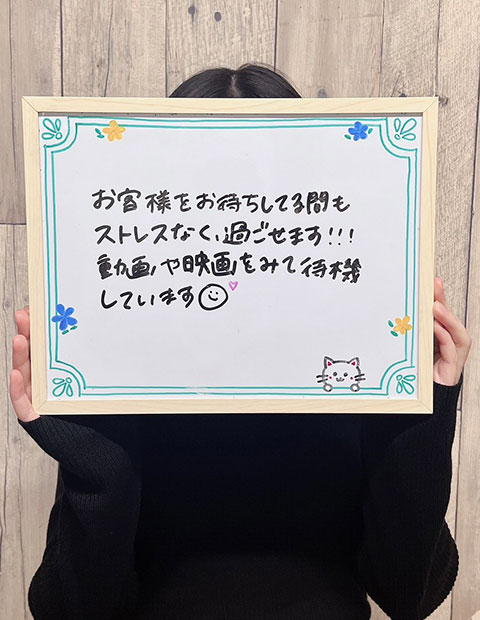 お客様をお待ちしてる間も
ストレスなく、過ごせます!!!
動画や映画をみて待機
しています